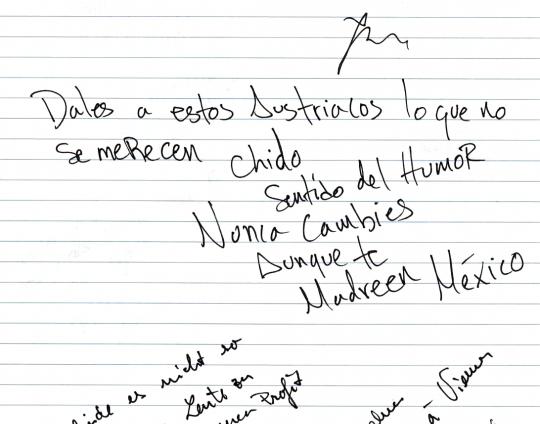 Dales a estos Austriacos lo que no
se meRecen chido
Sentido del HumoR
Nunca Cambies
Aunque te
Madreen México
es nicht so
Leute zu
Profit
à Vienne